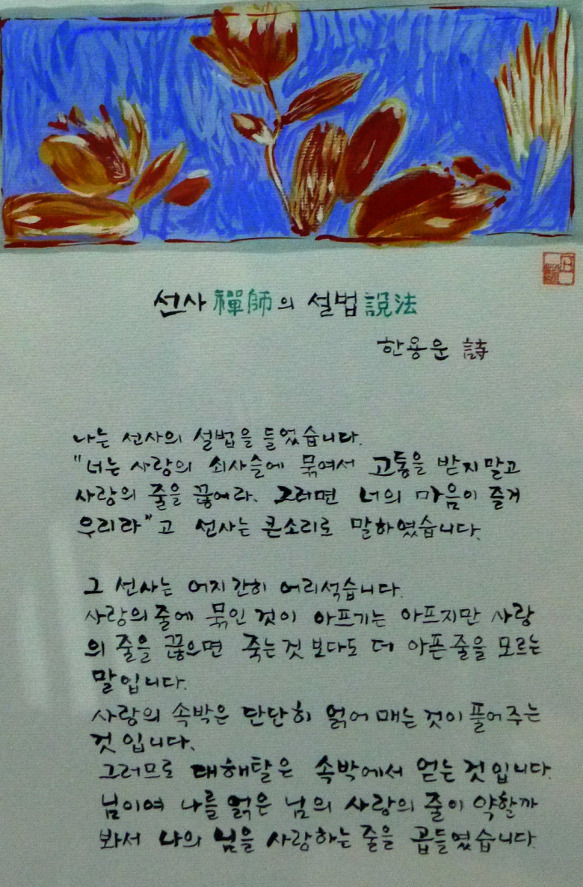 선사 禪師의 설법 說法
한용운 詩
나는 선사의 설법을 들었습니다.
"너는 사랑의 쇠사슬에 묶여서 고통을 받지 말고
사랑의 줄을 끊어라. 그러면 너의 마음이 즐거
우리라"고 선사는 큰소리로 말하였습니다.
그 선사는 어지간히 어리석습니다.
사랑의 줄에 묶인 것이 아프기는 아프지만 사랑
의 줄을 끊으면 죽는 것 보다도 더 아픈 줄을 모르는
말입니다.
사랑의 속박은 단단히 얽어 매는 것이 풀어주는
것입니다.
그러므로 대해탈은 속박에서 얻는 것입니다.
님이여 나를 얽은 님의 사랑의 줄이 약할까
봐서 나의 님을 사랑하는 줄을 곱들였습니다.